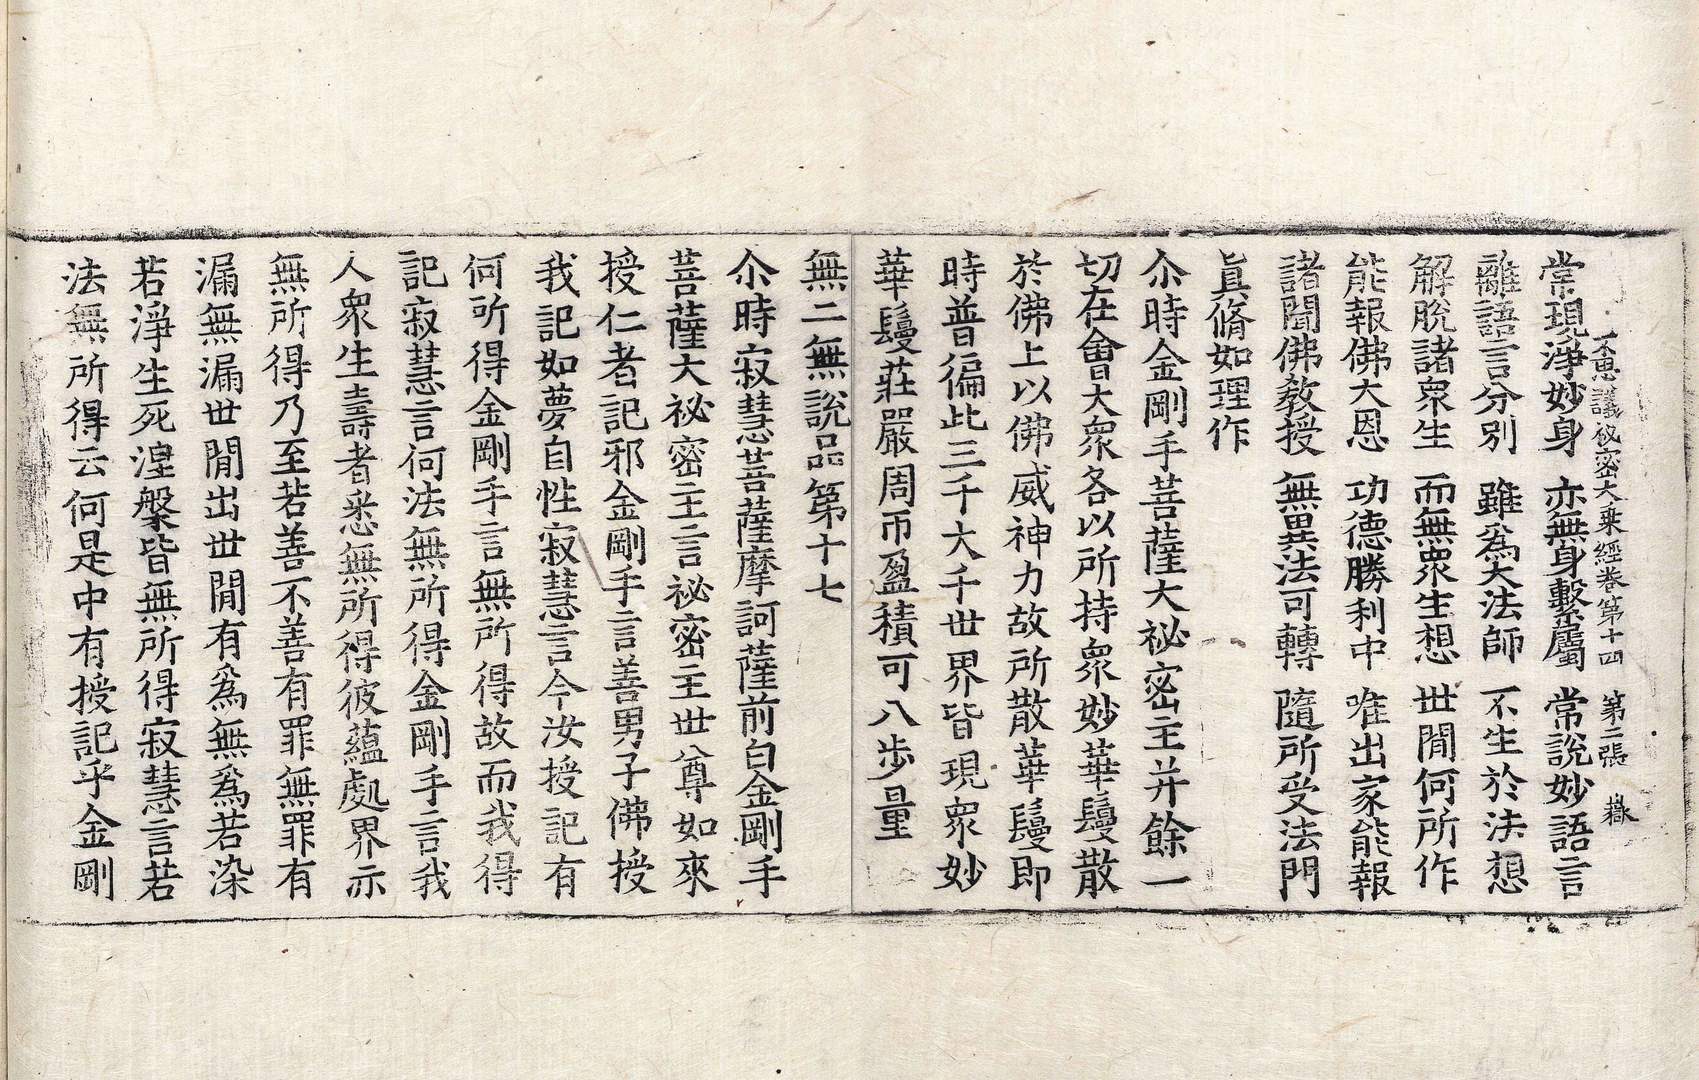 不思議秘密大乘經卷第十四　第二張
常現淨妙身　亦無身繫屬　常說妙語言
離語言分別　雖爲大法師　不生於法想
解脫諸衆生　而無衆生想　世閒何所作
能報佛大恩　功德勝利中　唯出家能報
諸聞佛敎授　無異法可轉　隨所受法門
眞脩如理作
尒時金剛手菩薩大祕密主并餘一
切在會大衆各以所持衆妙華鬘散
於佛上以佛威神力故所散華鬘即
時普徧此三千大千世界皆現衆妙
華鬘莊嚴周帀盈積可八步量
無二無說品第十七
尒時寂慧菩薩摩訶薩前白金剛手
菩薩大祕密主言祕密主世尊如來
授仁者記邪金剛手言善男子佛授
我記如夢自性寂慧言今汝授記有
何所得金剛手言無所得故而我得
記寂慧言何法無所得金剛手言我
人衆生壽者悉無所得彼蘊處界亦
無所得乃至若善不善有罪無罪有
漏無漏世閒出世閒有爲無爲若染
若淨生死涅槃皆無所得寂慧言若
法無所得云何是中有授記乎金剛